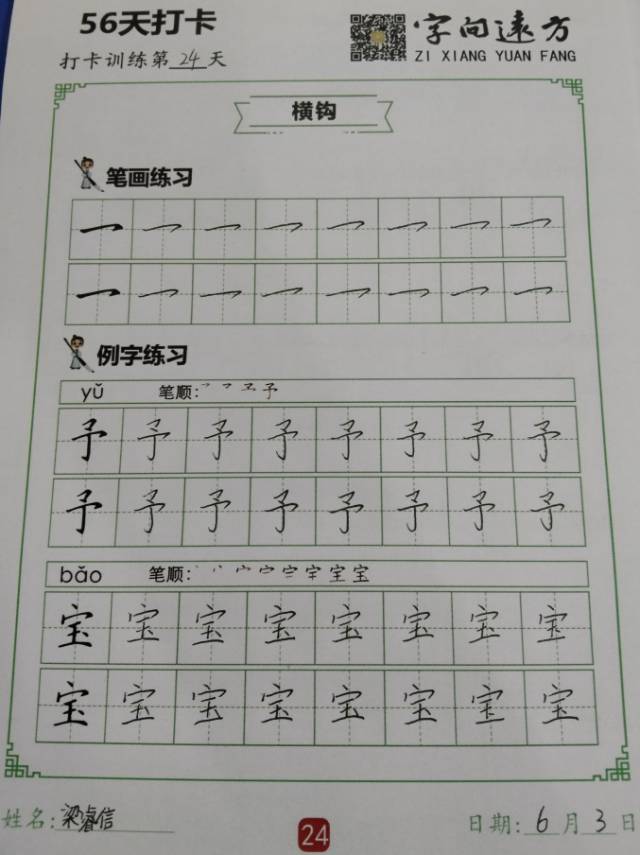 56天打卡
字向远方
打卡训练第24天
ZI XIANG YUAN FANG
横钩
笔画练习
一 一 一 一 一 一 一 一
一 一 一 一 一 一 一 一
例字练习
yǔ 笔顺:
予 予 予 予 予 予 予 予
予 予 予 予 予 予 予 予
bǎo 笔顺:
宝 宝 宝 宝 宝 宝 宝 宝
宝 宝 宝 宝 宝 宝 宝 宝
姓名:梁睿信
24
日期:6月3日